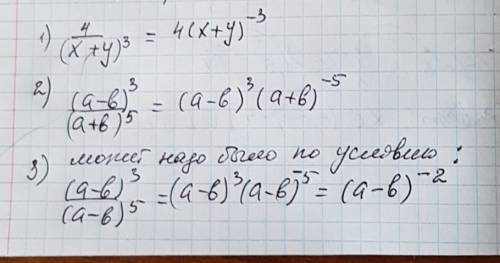 1) 4/(x+y)³ = 4(x+y)⁻³
2) (а-в)³/(а+в)⁵ = (а-в)³(а+в)⁻⁵
3) может надо было по условию:
(а-в)³/(а-в)⁵ = (а-в)³(а-в)⁻⁵ = (а-в)⁻²